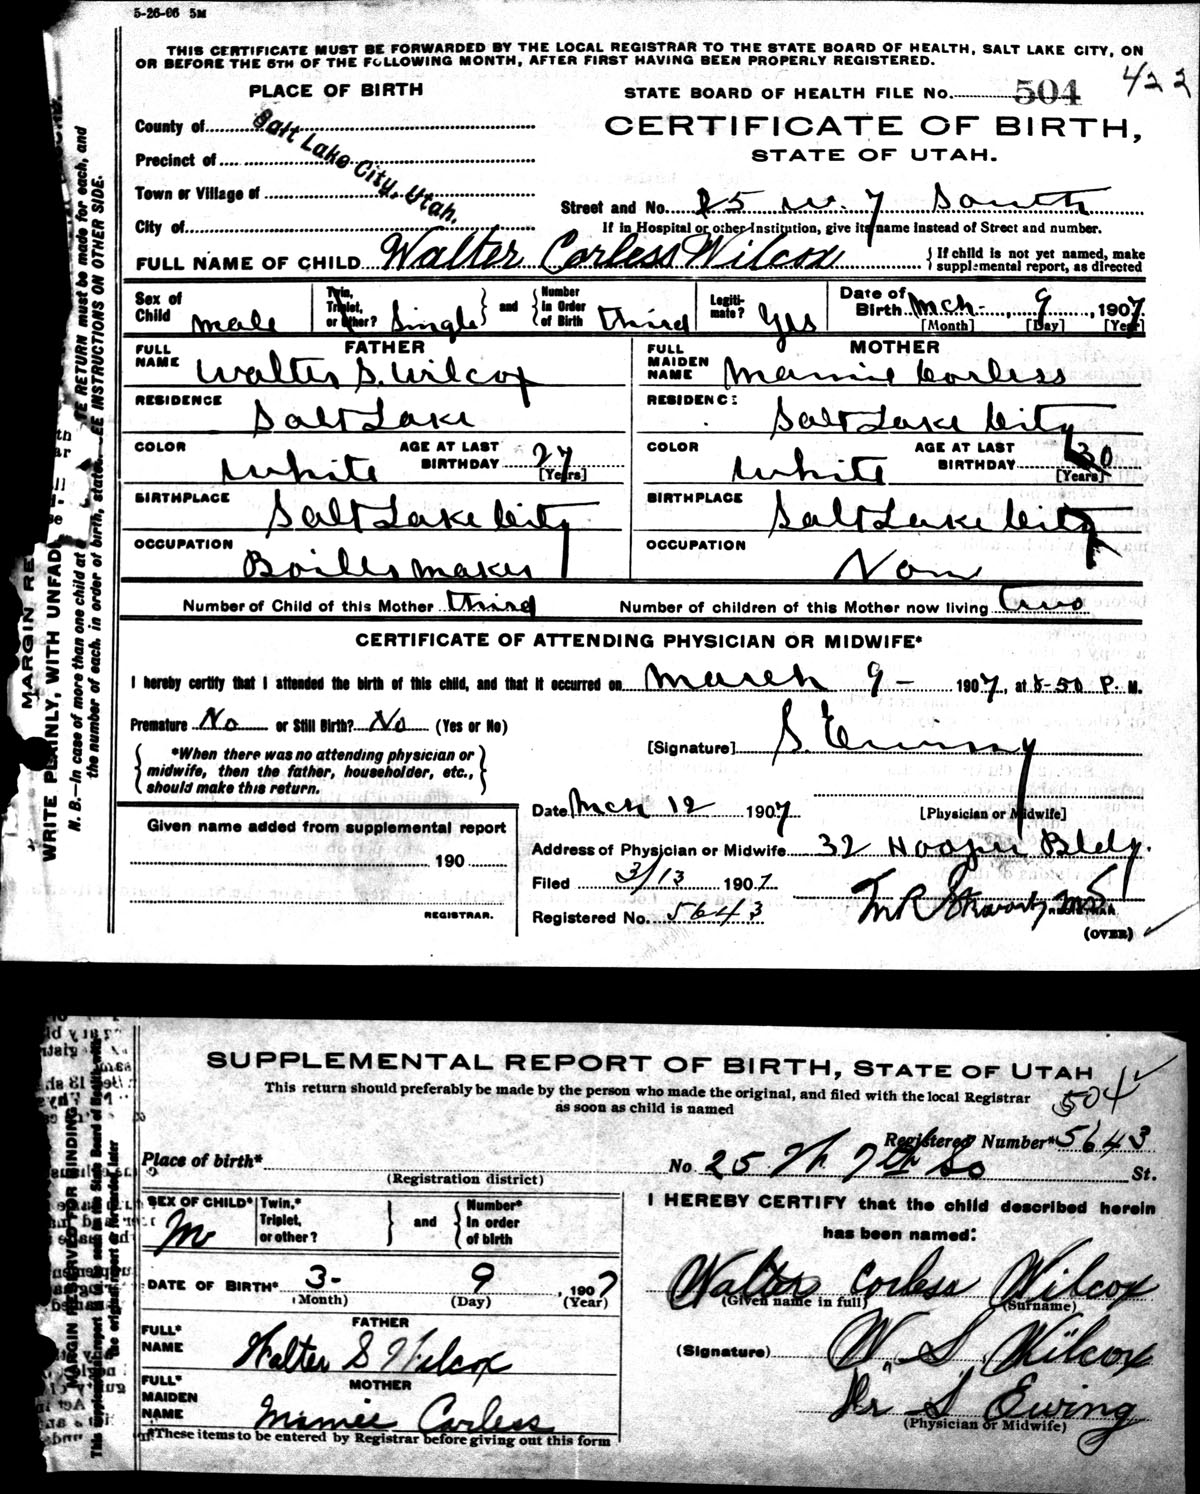 5-26-06 5M
THIS CERTIFICATE MUST BE FORWARDED BY THE LOCAL REGISTRAR TO THE STATE BOARD OF HEALTH, SALT LAKE CITY, ON
OR BEFORE THE 5TH OF THE FOLLOWING MONTH, AFTER FIRST HAVING BEEN PROPERLY REGISTERED.
422
PLACE OF BIRTH
STATE BOARD OF HEALTH FILE No. 504
CERTIFICATE OF BIRTH,
STATE OF UTAH.
County of
Precinct of
Town or Village of
City of
Salt Lake City, Utah.
Street and No. 25 W. 7 South
If in Hospital or other Institution, give its name instead of Street and number.
FULL NAME OF CHILD Walter Corless Wilcox { If child is not yet named, make supplemental report, as directed
Sex of Child male Twin, Triplet, or Other? Single and Number in Order of Birth third Legitimate? Yes Date of Birth Mch 9, 1907
[Month] [Day] [Year]
FATHER
FULL NAME Walter S. Wilcox
RESIDENCE Salt Lake
COLOR White AGE AT LAST BIRTHDAY 27 [Years]
BIRTHPLACE Salt Lake City
OCCUPATION Boiler maker
MOTHER
FULL MAIDEN NAME Mamie Corless
RESIDENCE Salt Lake City
COLOR White AGE AT LAST BIRTHDAY 30 [Years]
BIRTHPLACE Salt Lake City
OCCUPATION Non
Number of Child of this Mother third Number of children of this Mother now living two
CERTIFICATE OF ATTENDING PHYSICIAN OR MIDWIFE*
I hereby certify that I attended the birth of this child, and that it occurred on March 9 - 1907, at 8-50 P. M.
Premature No or Still Birth? No (Yes or No)
*When there was no attending physician or
midwife, then the father, householder, etc.,
should make this return.
[Signature] S. Ewing
[Physician or Midwife]
Date Mch 12 1907
Address of Physician or Midwife 32 Hooper Bldg.
Filed 3/13 1907
Registered No. 5643
REGISTRAR
(OVER)
Given name added from supplemental report
190
REGISTRAR.
MARGIN RE
WRITE PLAINLY, WITH UNFAD
N. B.—In case of more than one child at
E RETURN must be made for each, and
the number of each, in order of birth, state
EE INSTRUCTIONS ON OTHER SIDE.
SUPPLEMENTAL REPORT OF BIRTH, STATE OF UTAH
This return should preferably be made by the person who made the original, and filed with the local Registrar
as soon as child is named
504
Registered Number* 5643
Place of birth*
(Registration district)
No 25 W. 7th So St.
SEX OF CHILD* M Twin,* Triplet, or other? and Number* in order of birth
DATE OF BIRTH* 3- 9, 1907
(Month) (Day) (Year)
FATHER
FULL* NAME Walter S Wilcox
MOTHER
FULL* MAIDEN NAME Mamie Corless
*These items to be entered by Registrar before giving out this form
I HEREBY CERTIFY that the child described herein
has been named:
Walter Corless Wilcox
(Given name in full) (Surname)
(Signature) W. S. Wilcox
Dr S Ewing
(Physician or Midwife)
MARGIN RESERVED FOR BINDING